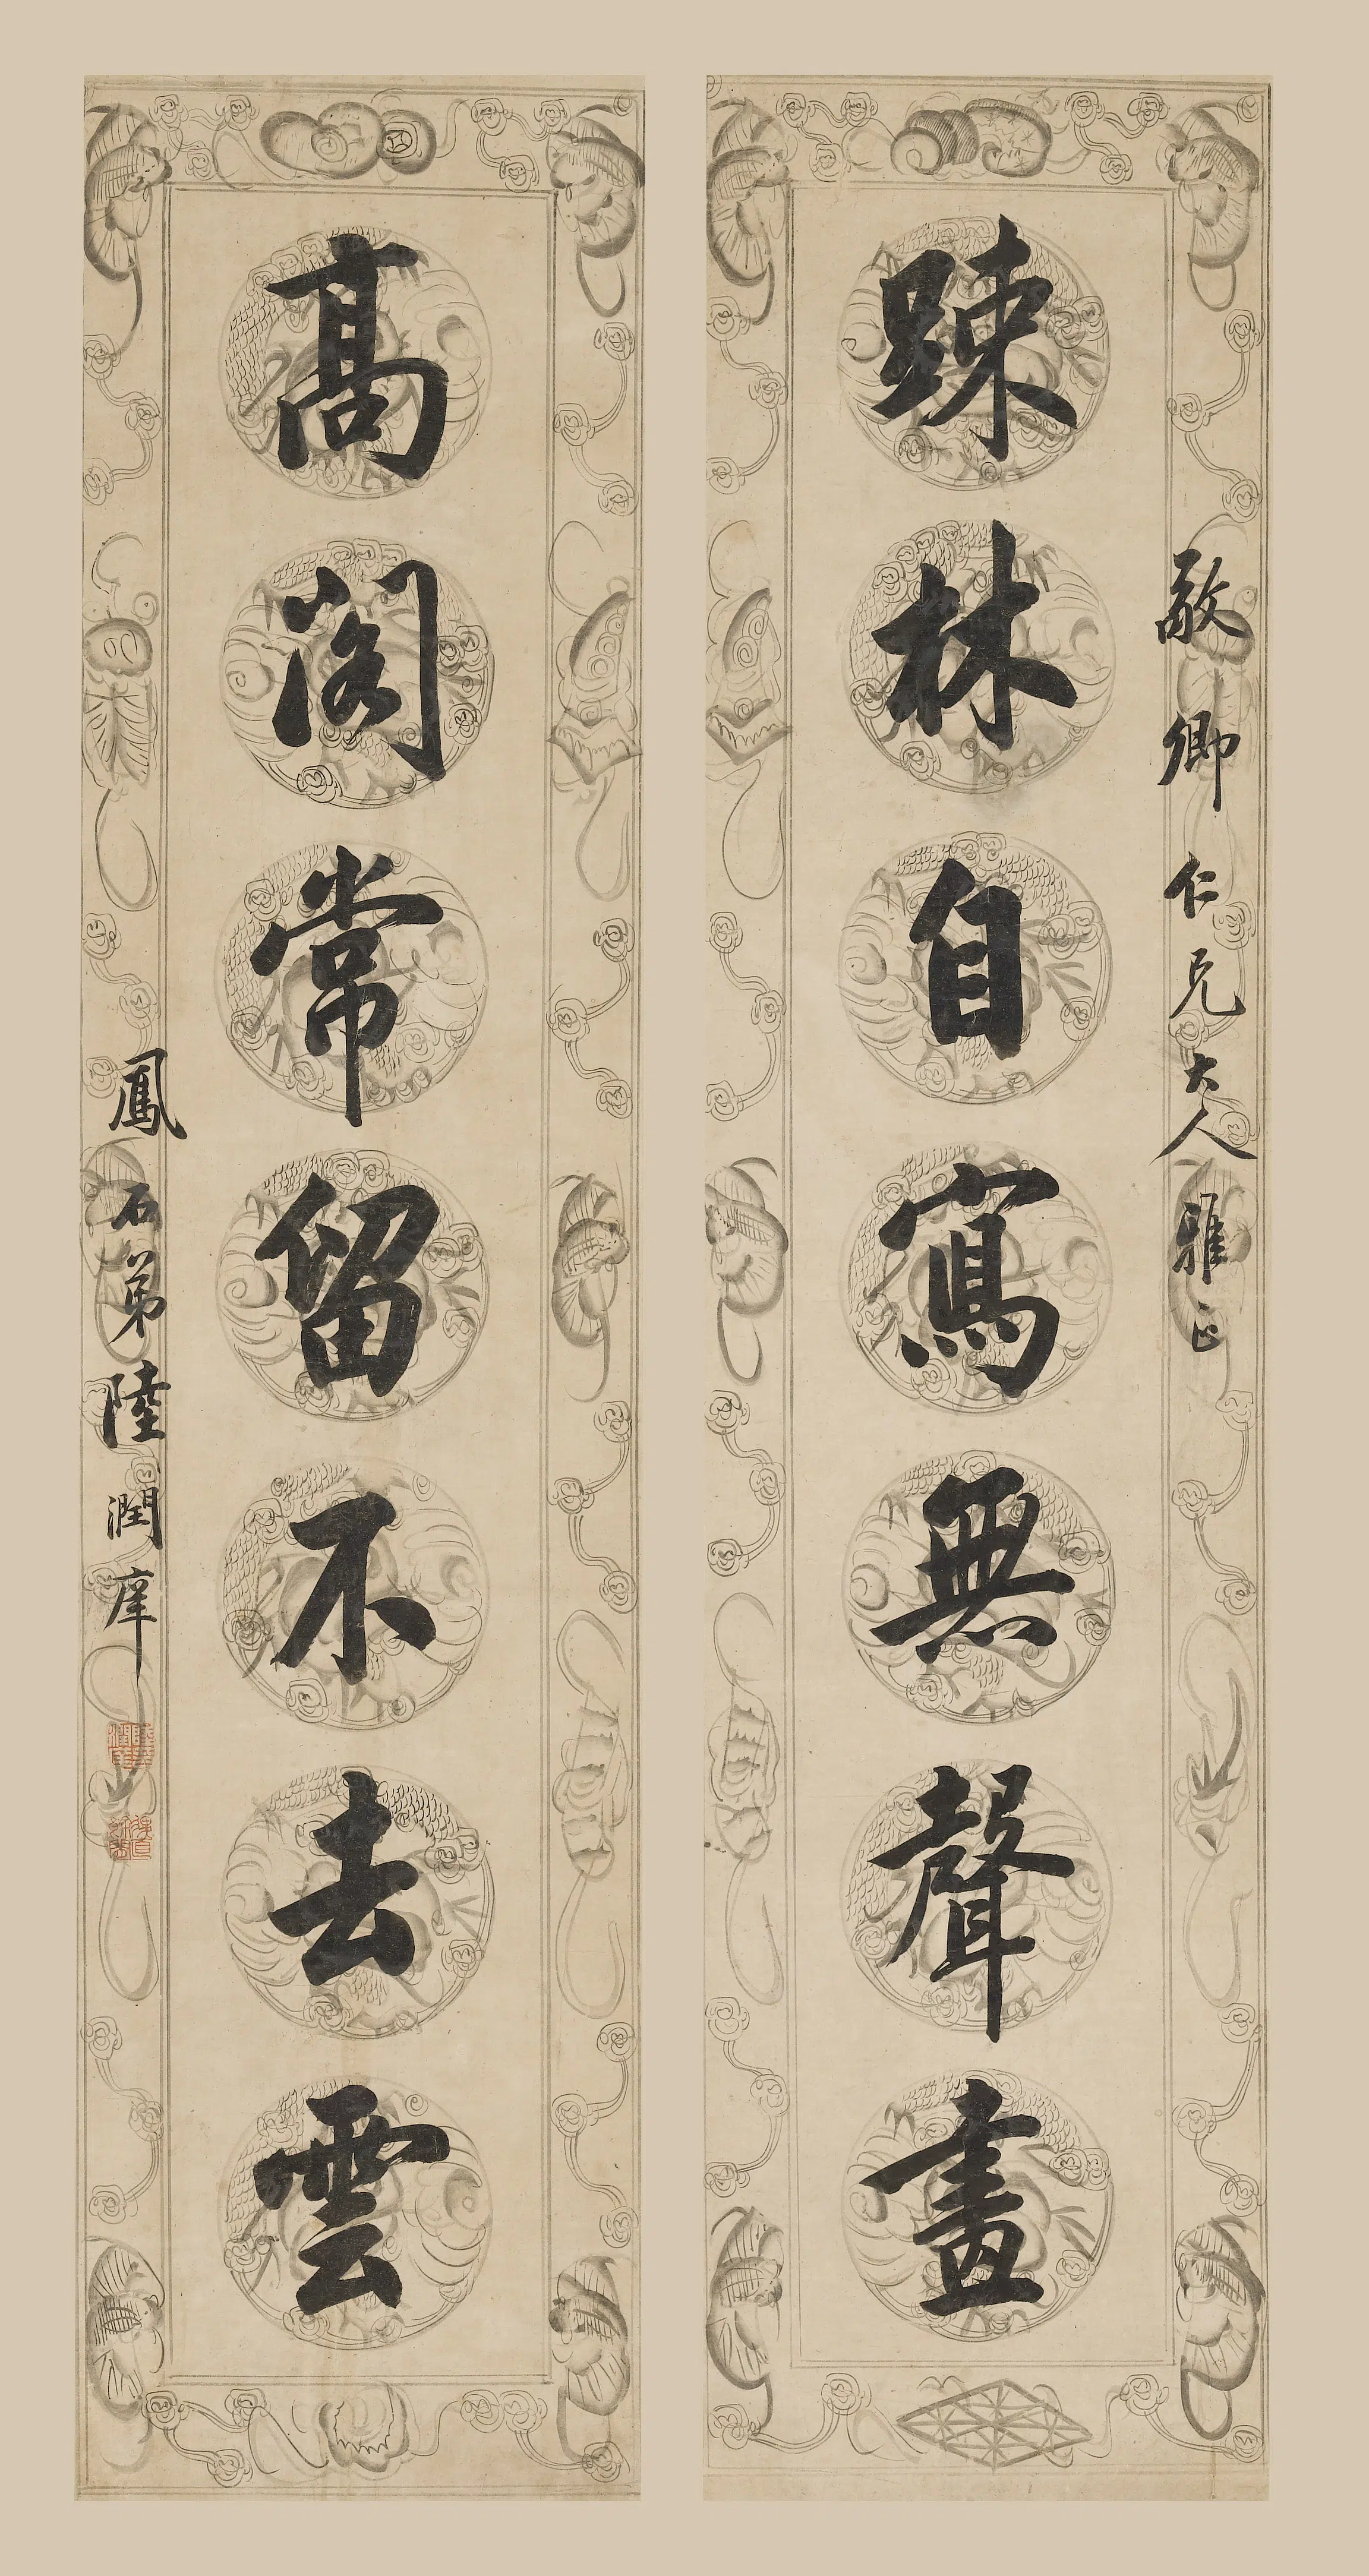 敬卿仁兄大人雅正
踈林自寫無聲畫
髙閣常留不去雲
鳳石弟陸潤庠